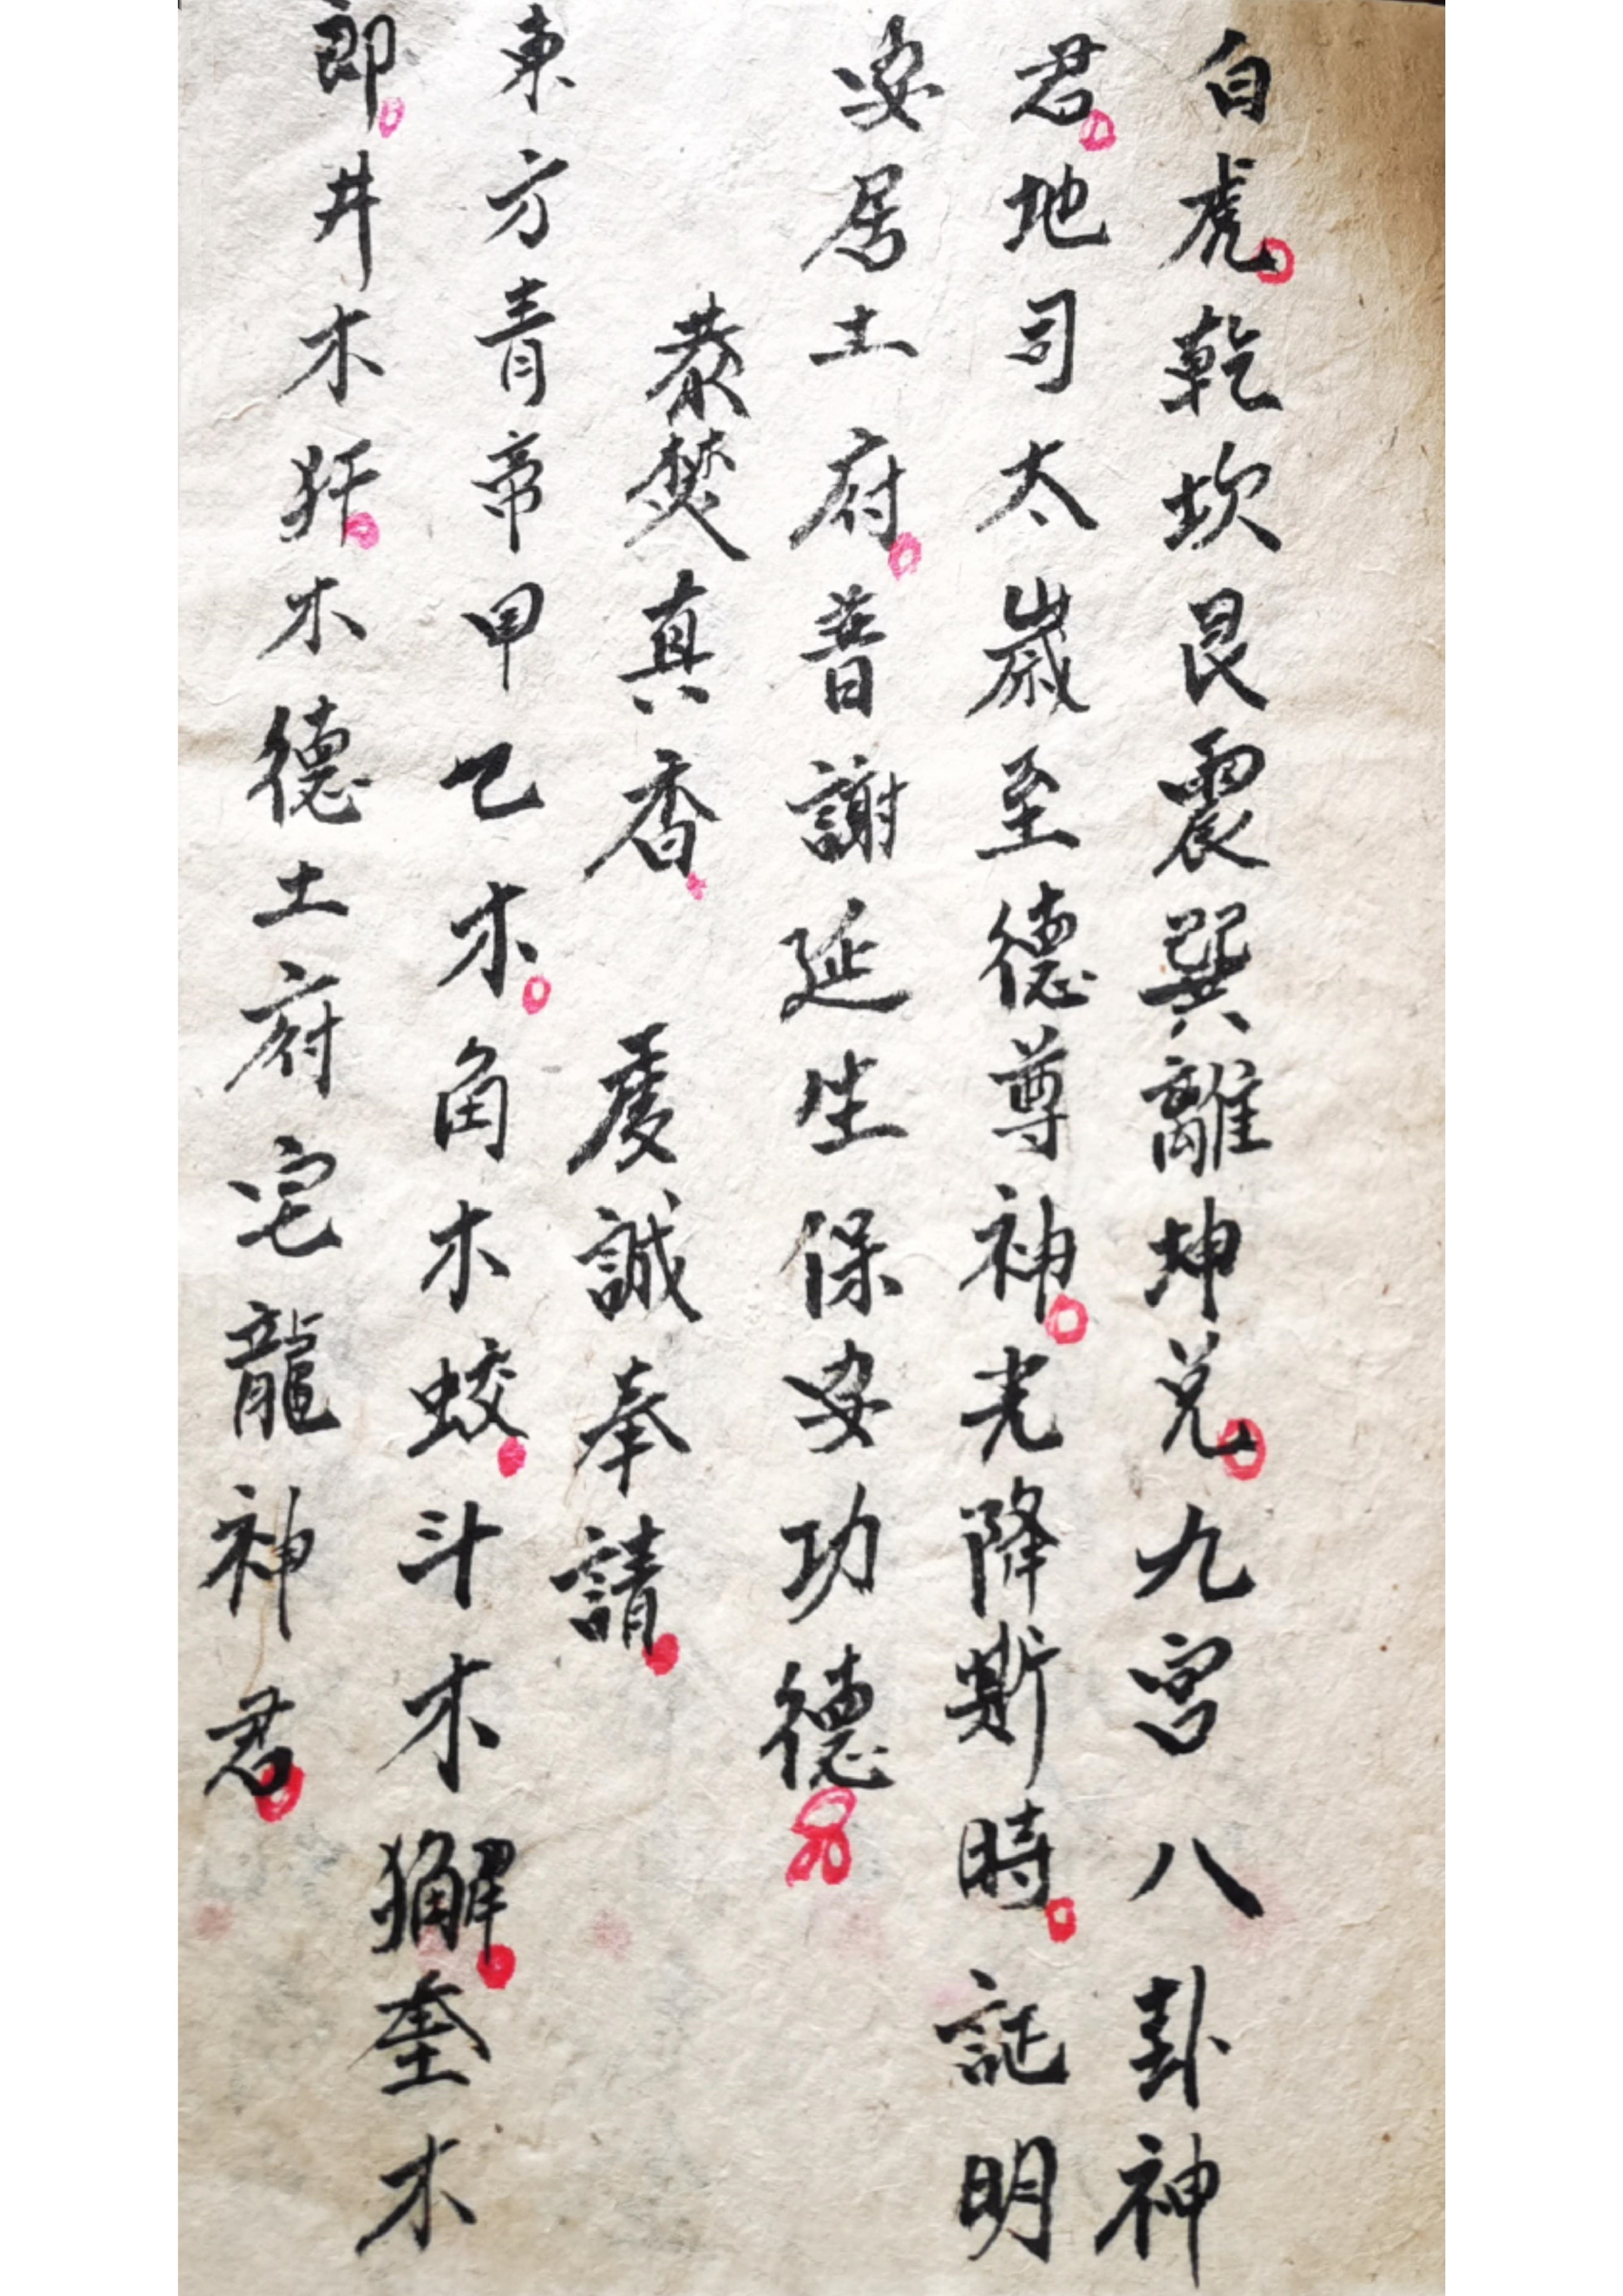 白虎。乾坎艮震巽離坤兑。九宮八卦神
君。地司太歲至德尊神。光降斯時。証明
安居土府。普謝延生保安功德
恭焚真香 虔誠奉請。
東方青帝甲乙木。角木蛟。斗木獬。奎木
郎。井木犴。木德土府宅龍神君。